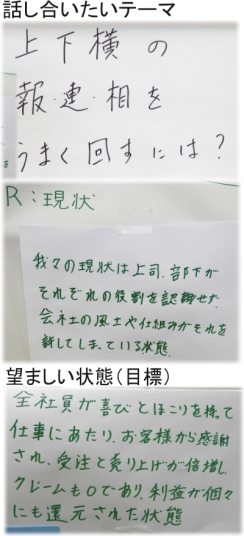 話し合いたいテーマ
上下横の
報・連・相を
うまく回すには？
R：現状
我々の現状は上司、部下が
それぞれの役割を認識せず
会社の風土や仕組みがそれを
許してしまっている状態
望ましい状態（目標）
全社員が喜びとほこりを持って
仕事にあたり、お客様から感謝
され、受注と売り上げが倍増し
クレームも0であり、利益が個々
にも還元された状態